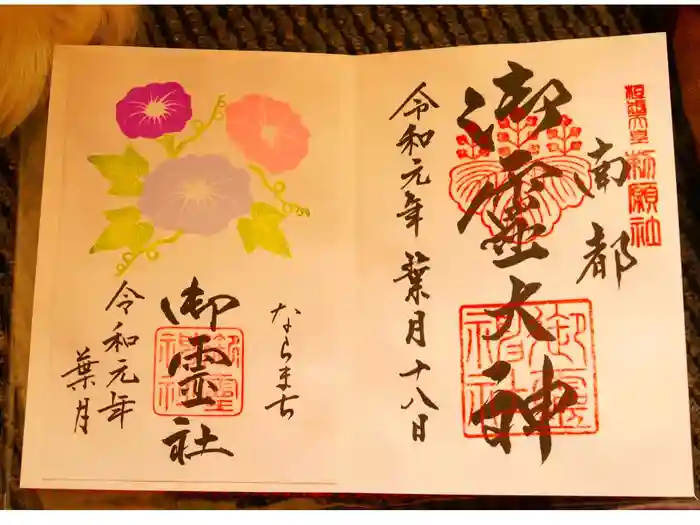 桓武天皇
祈願社
南都
御靈大神
令和元年 葉月十八日
御靈神社
ならまち
御霊社
令和元年
葉月